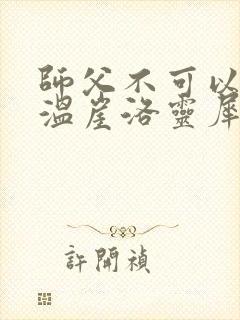 師父不可以
溫崖洛靈犀
許開禎